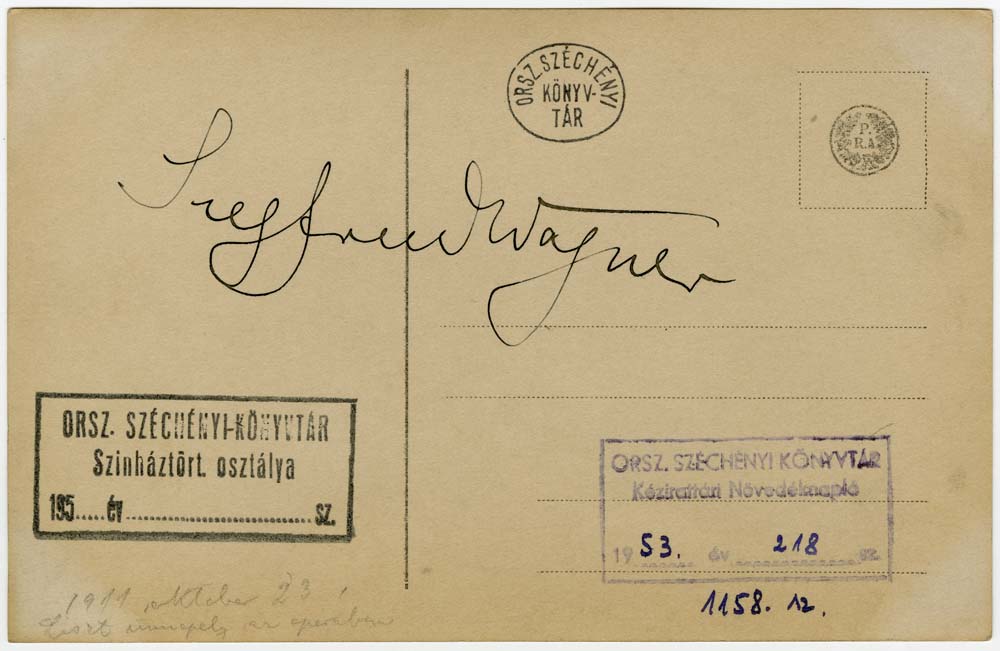 ORSZ. SZÉCHÉNYI
KÖNYV-
TÁR
P.
R.A.
Siegfried Wagner
ORSZ. SZÉCHÉNYI-KÖNYVTÁR
Szinháztört. osztálya
195.....év..............................sz.
ORSZ. SZÉCHÉNYI KÖNYVTÁR
Kézirattári Növedéknapló
19 53. év 218 sz.
1158. 12.
1911 október 23
Liszt ünnepély az operában